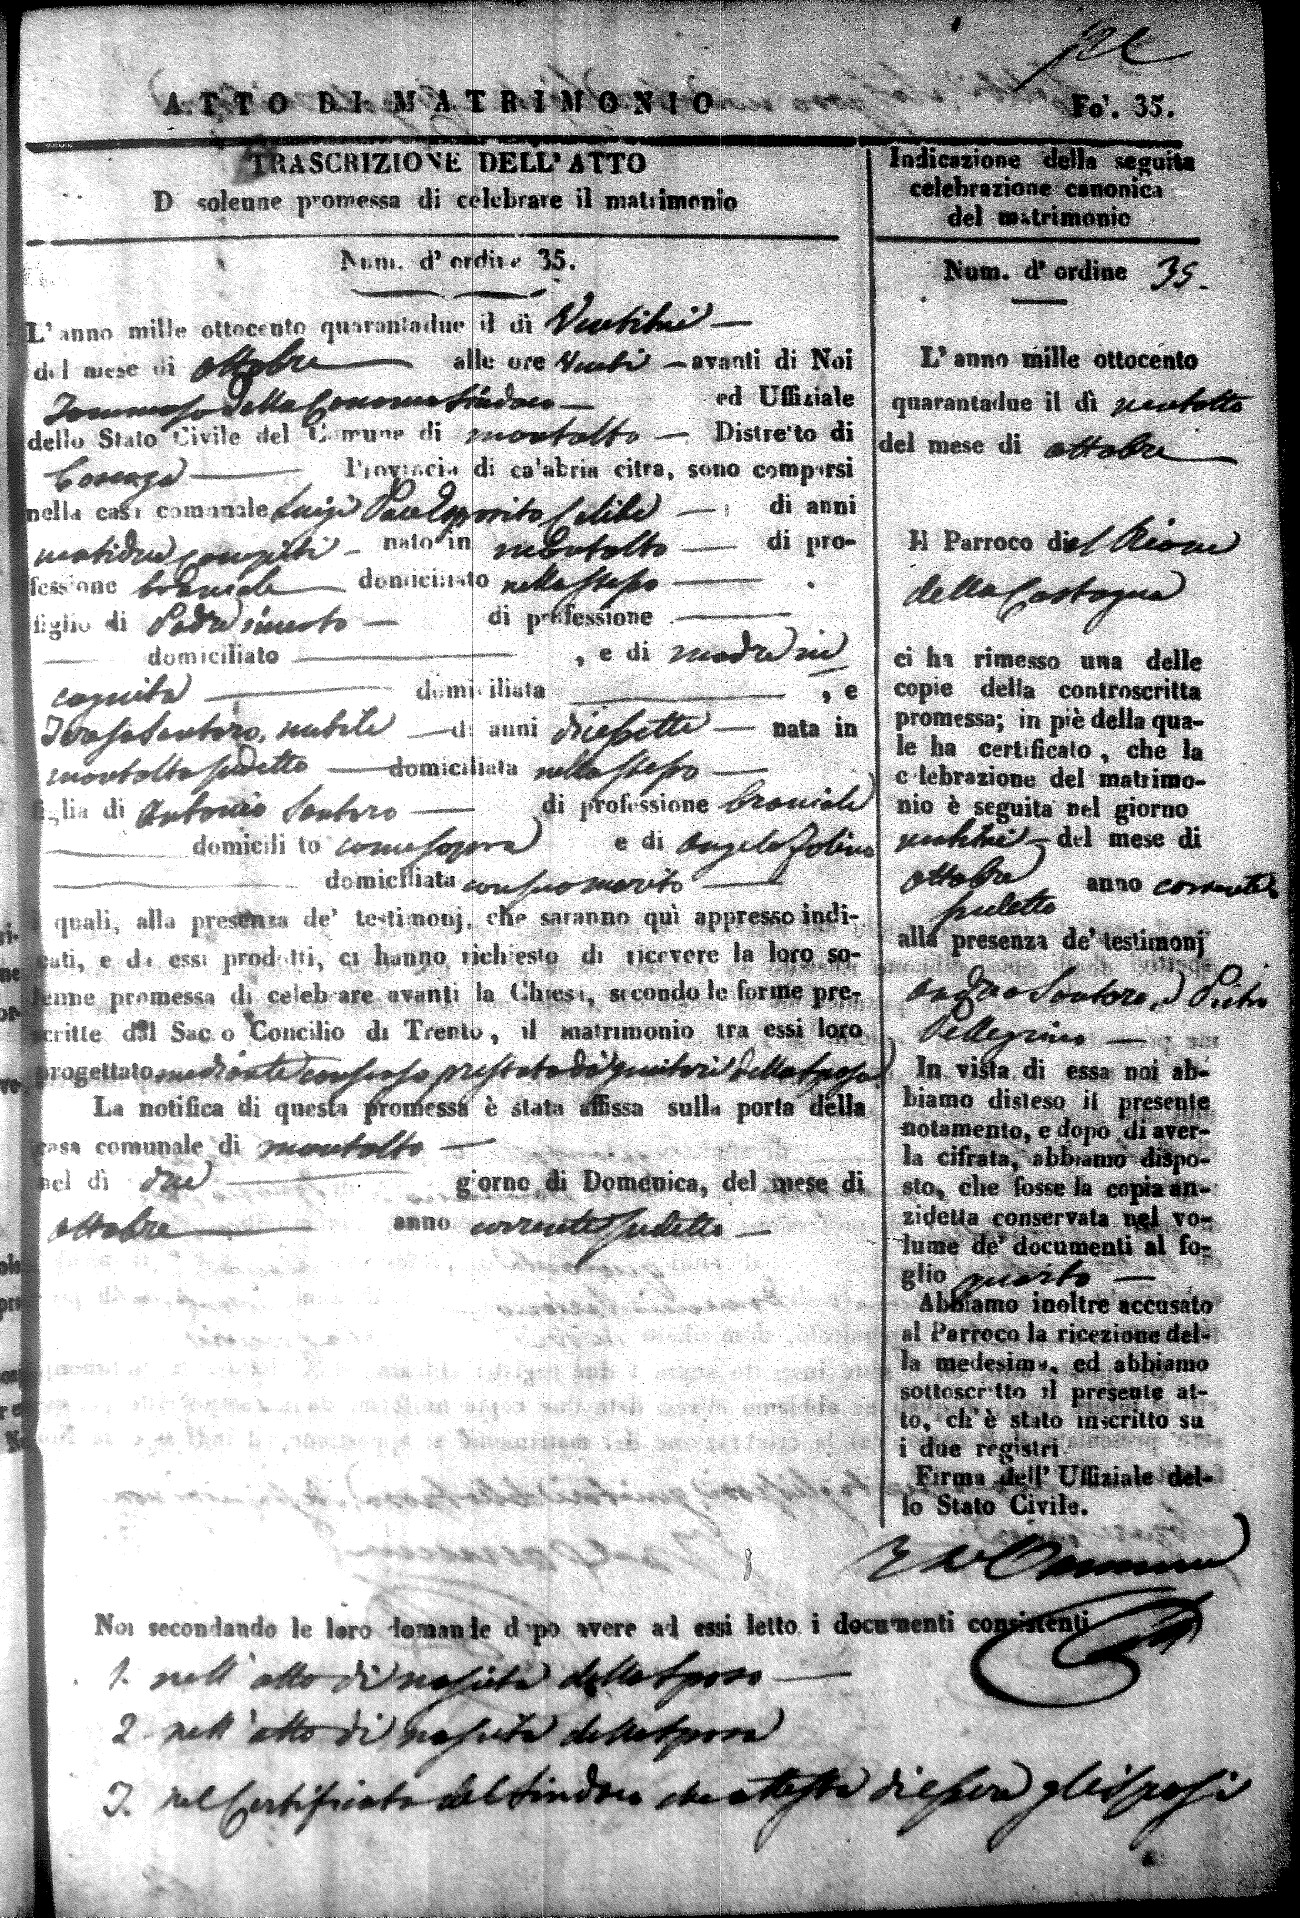 ATTO DI MATRIMONIO
Fo'. 35.
TRASCRIZIONE DELL'ATTO
D solenne promessa di celebrare il matrimonio
Num. d'ordine 35.
L'anno mille ottocento quarantadue il dì Ventitrè
del mese di ottobre alle ore venti avanti di Noi
Tommaso della Sindaco ed Uffiziale
dello Stato Civile del Comune di montalto Distretto di
Cosenza Provincia di calabria citra, sono comparsi
nella casa comunale Luigi Pace Esposito Celibe di anni
ventidue compiti nato in montalto di pro-
fessione bracciale domiciliato nello stesso
figlio di Padre incerto di professione
domiciliato , e di madre in
cognita domiciliata , e
Teresa Santoro, nubile di anni diecisette nata in
montalto sudetto domiciliata nello stesso
figlia di Antonio Santoro di professione bracciale
domicili to come sopra e di Angela
domiciliata con suo marito
i quali, alla presenza de' testimonj, che saranno quì appresso indi-
cati, e da essi prodotti, ci hanno richiesto di ricevere la loro so-
lenne promessa di celebrare avanti la Chiesa, secondo le forme pre-
scritte dal Sac o Concilio di Trento, il matrimonio tra essi loro
progettato mediante consenso prestato da' genitori della sposa
La notifica di questa promessa è stata affissa sulla porta della
casa comunale di montalto
nel dì due giorno di Domenica, del mese di
ottobre anno corrente sudetto
Noi secondando le loro domande dopo avere ad essi letto i documenti consistenti
1. nell'atto di nascita dello sposo
2. nell'atto di nascita della sposa
3. nel Certificato del Sindaco che attesta di essere gli sposi
Indicazione della seguita
celebrazione canonica
del matrimonio
Num. d'ordine 35.
L'anno mille ottocento
quarantadue il dì ventotto
del mese di ottobre
Il Parroco del Rione
della Castagna
ci ha rimesso una delle
copie della controscritta
promessa; in piè della qua-
le ha certificato, che la
c lebrazione del matrimo-
nio è seguita nel giorno
ventitrè del mese di
ottobre anno corrente
sudetto
alla presenza de' testimonj
Andrea Santoro, e Pietro
Pellegrino
In vista di essa noi ab-
biamo disteso il presente
notamento, e dopo di aver-
la cifrata, abbiamo dispo-
sto, che fosse la copia an-
zidetta conservata nel vo-
lume de' documenti al fo-
glio quarto
Abbiamo inoltre accusato
al Parroco la ricezione del-
la medesima, ed abbiamo
sottoscritto il presente at-
to, ch'è stato inscritto su
i due registri.
Firma dell' Uffiziale del-
lo Stato Civile.